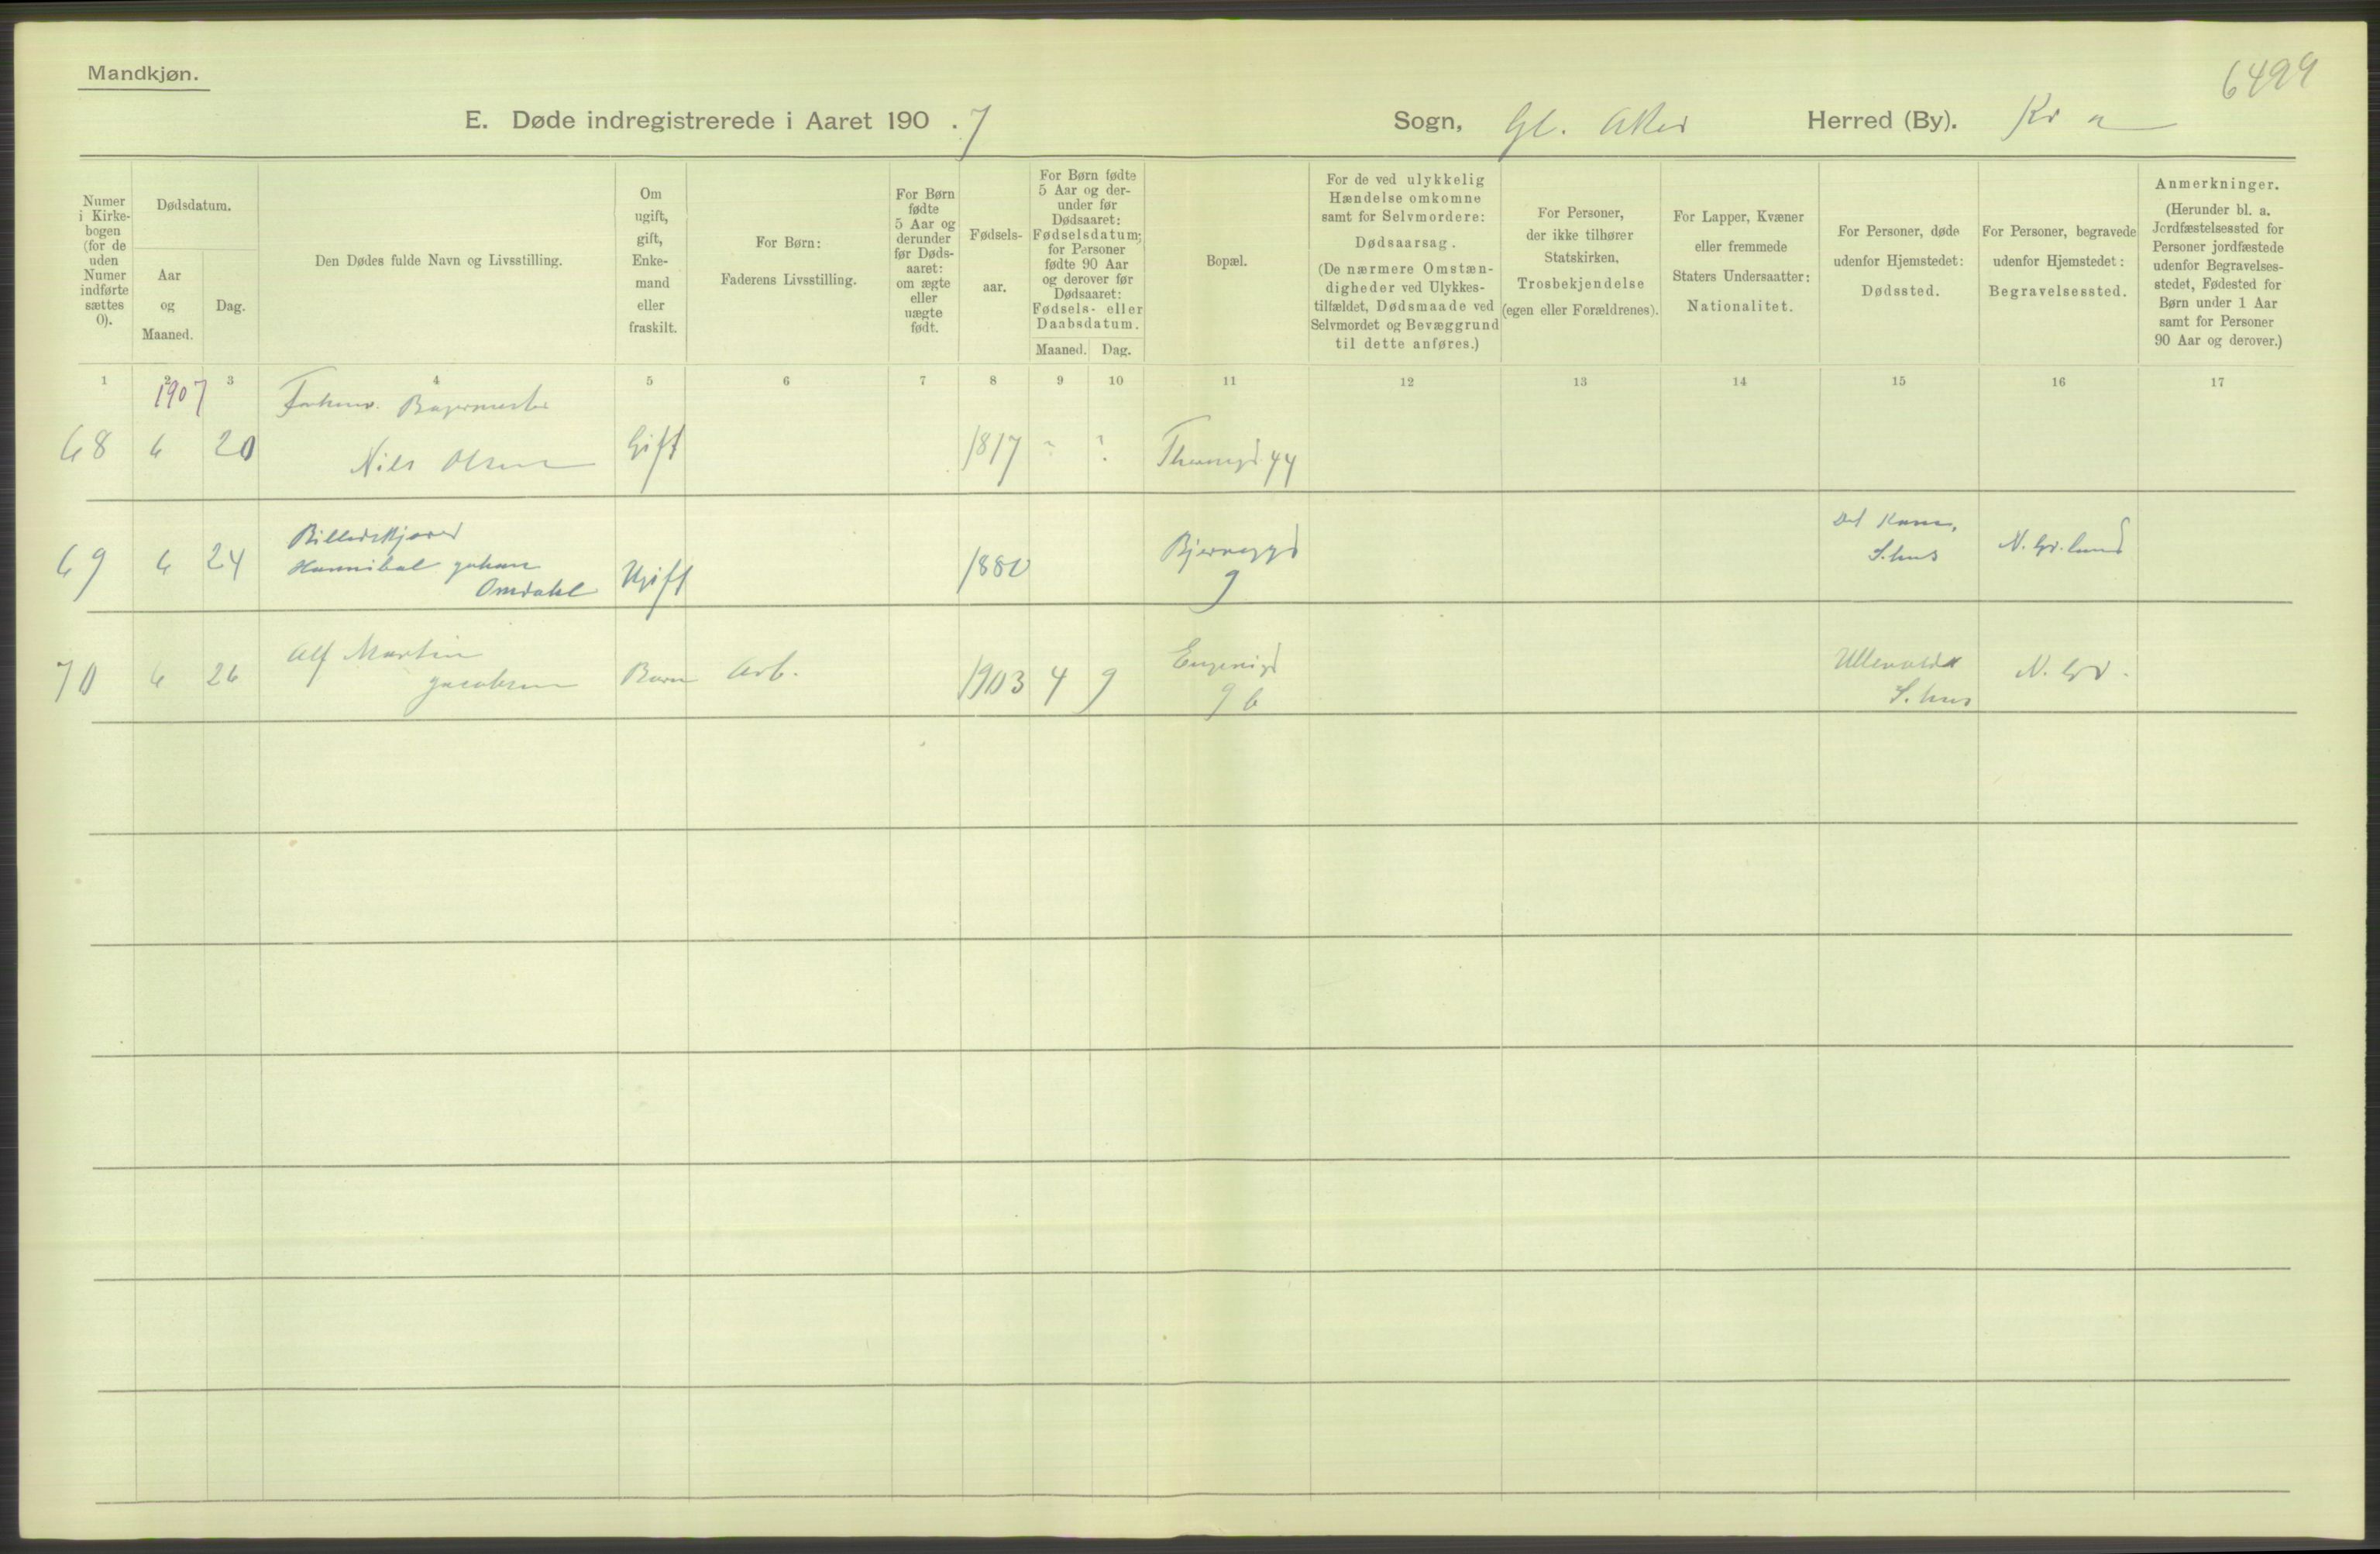 Mandkjøn.
6499
E. Døde indregistrerede i Aaret 190 . 7 Sogn, Gl. Aker Herred (By). Kr a
Numer i Kirkebogen (for de uden Numer indførte sættes 0).
Dødsdatum.
Aar og Maaned.
Dag.
Den Dødes fulde Navn og Livsstilling.
Om ugift, gift, Enkemand eller fraskilt.
For Børn:
Faderens Livsstilling.
For Børn fødte 5 Aar og derunder før Dødsaaret: om ægte eller uægte født.
Fødselsaar.
For Børn fødte 5 Aar og derunder før Dødsaaret: Fødselsdatum; for Personer fødte 90 Aar og derover før Dødsaaret: Fødsels- eller Daabsdatum.
Maaned. Dag.
Bopæl.
For de ved ulykkelig Hændelse omkomne samt for Selvmordere:
Dødsaarsag.
(De nærmere Omstændigheder ved Ulykkestilfældet, Dødsmaade ved Selvmordet og Bevæggrund til dette anføres.)
For Personer, der ikke tilhører Statskirken,
Trosbekjendelse
(egen eller Forældrenes).
For Lapper, Kvæner eller fremmede Staters Undersaatter:
Nationalitet.
For Personer, døde udenfor Hjemstedet:
Dødssted.
For Personer, begravede udenfor Hjemstedet:
Begravelsessted.
Anmerkninger.
(Herunder bl. a. Jordfæstelsessted for Personer jordfæstede udenfor Begravelsesstedet, Fødested for Børn under 1 Aar samt for Personer 90 Aar og derover.)
1 2 3 4 5 6 7 8 9 10 11 12 13 14 15 16 17
1907 Bagermester
68 6 20 Nils Olsen Gift 1817 ? ? 44
Billedskjærer
69 6 24 Hannibal Johan Omdahl Ugift 1880 Bjerregd 9 S.hus N. Gr.lund
70 6 26 Alf Martin Jacobsen Barn Arb. 1903 4 9 Eugenigd 9 b Ullevold S.hus N. Gr.